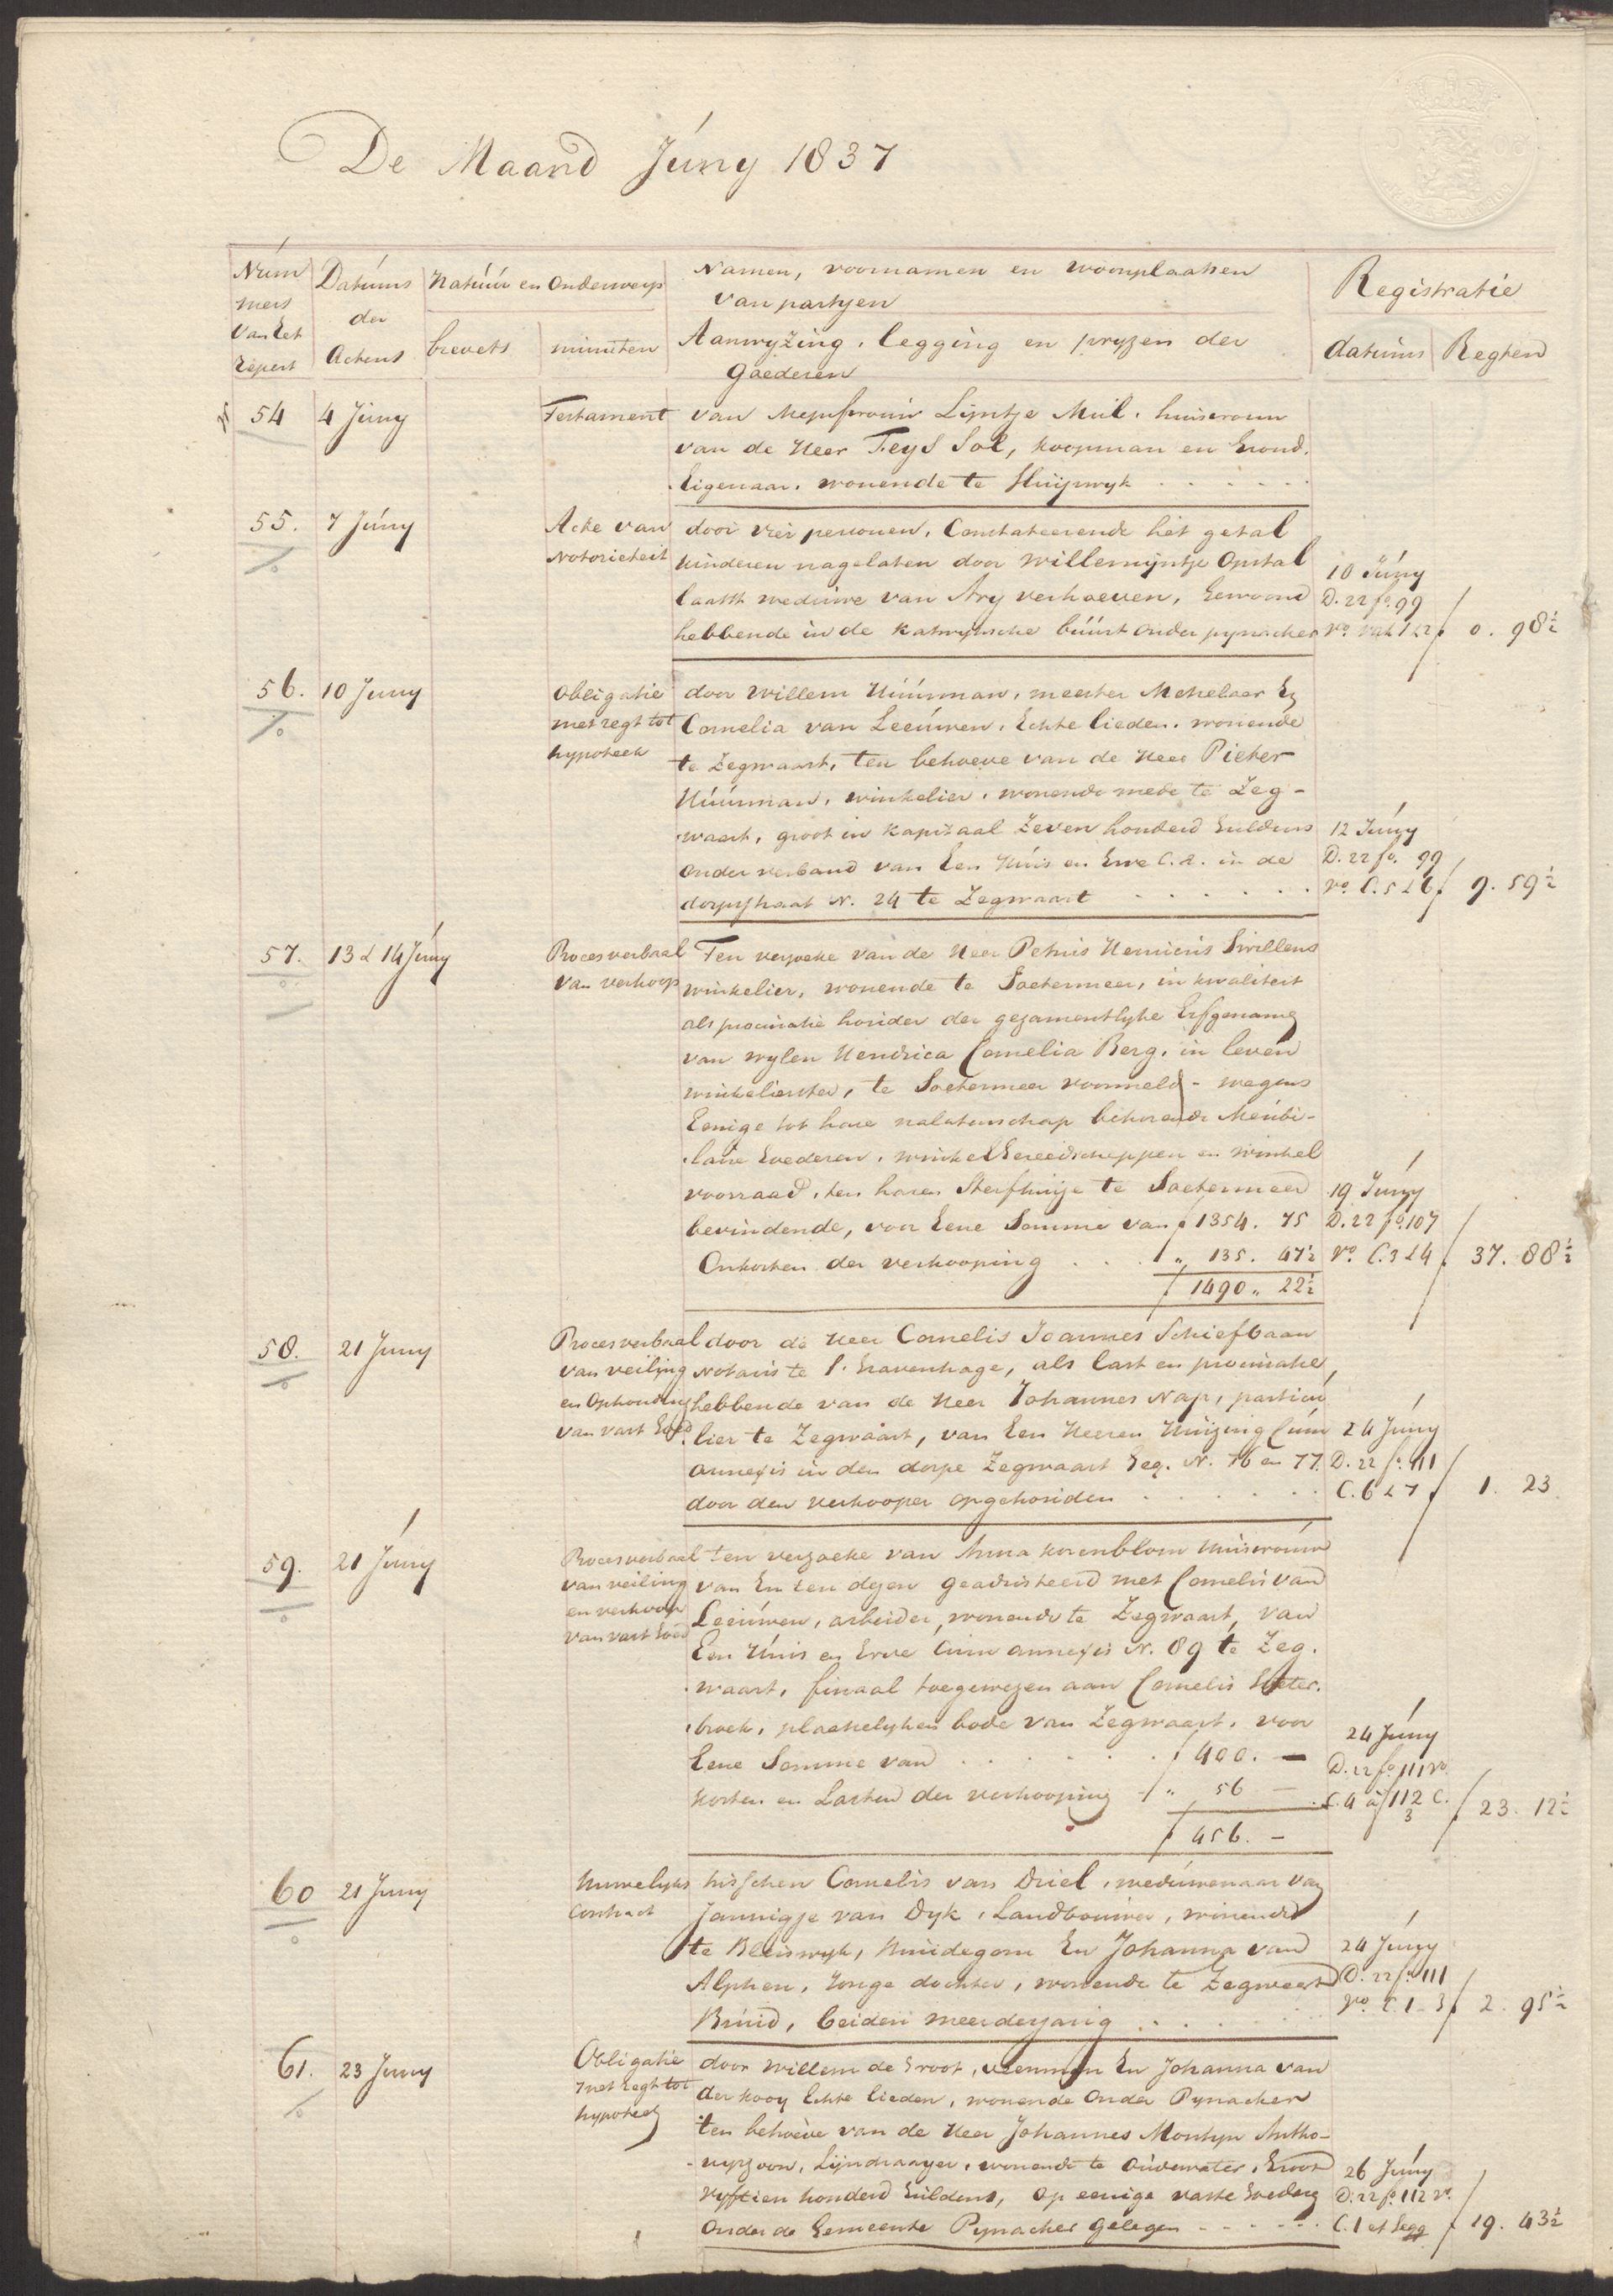 De Maand Júny 1837
Núm
mers
van het
repert
Datúms
der
Actens
Natúúr en Onderwerp
brevets
minúten
Namen, voornamen en woonplaatsen
van partyen
Aanwyzing, legging en pryzen der
Goederen
Registratie
datúms
Regten
54
4 Júny
Testament
van Mejufvrouw Lijntje Mul. huisvrouw
van de Heer Teys Sol, koopman en Grond.
Eigenaar. wonende te
55.
7 Júny
Acte van
Notorieteit
door vier personen, Constateerende het getal
kinderen nagelaten door Willemijntje Opstal
laatst weduwe van Ary verhoeven, Gewoond
hebbende in de Katwyksche búúrt onder pynacker
10 Júny
D. 22 fo. 99
vo. vak 1 & 2
f 0. 98½
56.
10 Juny
Obligatie
met regt tot
hypoteek
door Willem Húúrman, meester Metselaar En
Cornelia van Leeúwen, Echte lieden. wonende
te Zegwaart, ten behoeve van de Heer Pieter
Húúrman, winkelier, wonende mede te Zeg-
waart, groot in kapitaal Zeven honderd Guldens
onder verband van Een Húis en Erve C.a. in de
dorpstraat N. 24 te Zegwaart
12 Júny
D. 22 fo. 99
vo. C. 5 & 6
f 9. 59½
57.
13 & 14 Júny
Procesverbaal
van verkoop
Ten verzoeke van de Heer Petrus Henricus Swillens
winkelier, wonende te Soetermeer, in kwaliteit
als procuratie houder der gezamentlyke Erfgenamen
van wylen Hendrica Cornelia Berg, in leven
winkelierster, te Soetermeer voormeld - wegens
Eenige tot hare nalatenschap behorende Meúbi-
laire Goederen, winkel Gereedschappen en winkel
voorraad, ten haren Sterfhuize te Soetermeer
bevindende, voor Eene Somme van f 1354. 75
Onkosten der verkooping . . . " 135. 47½
f 1490 " 22½
19 Júny
D. 22 fo. 107
vo. C. 3 & 4
f 37. 88½
58.
21 Juny
Procesverbaal
van veiling
en Ophouding
van vast Goed
door de Heer Cornelis Joannes Schiefbaan
Notaris te s. Gravenhage, als last en procuratie
hebbende van de Heer Johannes Nap, particú
lier te Zegwaart, van Een Heeren Huizing Cúm
annexis in den dorpe Zegwaart Geq. N. 76 en 77.
door den verkooper opgehouden
24 Júny
D. 22 fo. 111
C. 6 & 7
f 1. 23
59.
21 Júny
Procesverbaal
van veiling
en verkoop
van vast Goed
ten verzoeke van Anna korenblom Huisvrouw
van En ten dezen geadsisteerd met Cornelis van
Leeúwen, arbeider, wonende te Zegwaart, van
Een Húis en Erve Cúm annexis N. 89 te Zeg.
waart, finaal toegewezen aan Cornelis
broek, plaatselyken bode van Zegwaart, voor
Eene Somme van . . . f 400. —
Kosten en Lasten der verkooping " 56 —
f 456. —
24 Júny
D. 22 fo. 111 vo.
C. 4 à 112 C.
3
f 23. 12½
60
21 Juny
Huwelyks
Contract
tusschen Cornelis van Driel, wedúwenaar van
Jannigje van Dyk, Landbouwer, wonende
te Bleiswyk, Bruidegom En Johanna van
Alphen, Jonge dochter, wonende te Zegwaart
Brúid, beiden meerderjarig
24 Juny
D. 22 fo. 111
vo. C. 1 - 3
f 2. 95½
61.
23 Juny
Obligatie
met regt tot
hypoteek
door Willem de Groot, veenman En Johanna van
der kooy Echte lieden, wonende Onder Pynacker
ten behoeve van de Heer Johannes Montyn Antho-
nyszoon, Lijndraayer, wonende te Oúdewater, Groot
vyftien honderd Guldens, op eenige vaste Goederen
onder de Gemeente Pynacker gelegen
26 Júny
D. 22 fo. 112 vo.
C. 1 et seqq
f 19. 43½